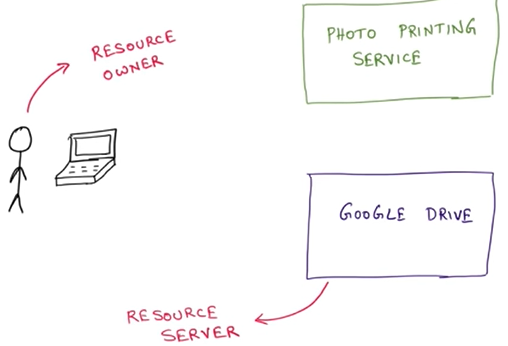 RESOURCE
OWNER
PHOTO PRINTING
SERVICE
GOOGLE DRIVE
RESOURCE
SERVER